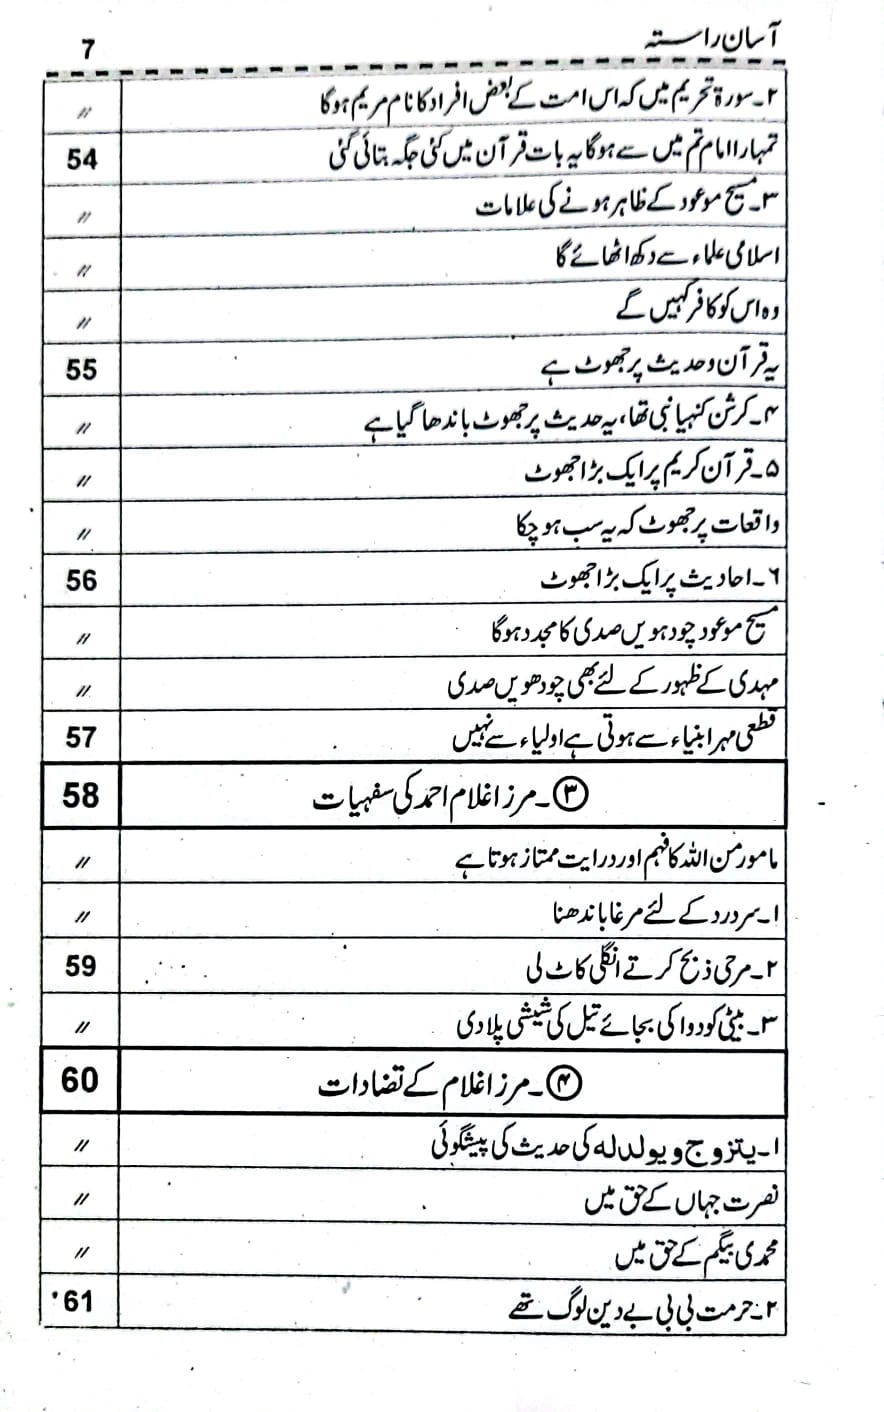 آسان راستہ 7
۲۔ سورۃ تحریم میں کہ اس امت کے بعض افراد کا نام مریم ہوگا 〃
تمہارا امام تم میں سے ہوگا یہ بات قرآن میں کئی جگہ بتائی گئی 54
۳۔ مسیح موعود کے ظاہر ہونے کی علامات 〃
اسلامی علماء سے دکھ اٹھائے گا 〃
وہ اس کو کافر کہیں گے 〃
یہ قرآن و حدیث پر جھوٹ ہے 55
۴۔ کرشن کنہیا نبی تھا، یہ حدیث پر جھوٹ باندھا گیا ہے 〃
۵۔ قرآن کریم پر ایک بڑا جھوٹ 〃
واقعات پر جھوٹ کہ یہ سب ہو چکا 〃
۶۔ احادیث پر ایک بڑا جھوٹ 56
مسیح موعود چودہویں صدی کا مجدد ہوگا 〃
مہدی کے ظہور کے لئے بھی چودھویں صدی 〃
قطعی مہر ابنیاء سے ہوتی ہے اولیاء سے نہیں 57
③۔ مرزا غلام احمد کی سفہیات 58
مامور من اللہ کا فہم اور درایت ممتاز ہوتا ہے 〃
۱۔ سر درد کے لئے مرغا باندھنا 〃
۲۔ مرحی ذبح کرتے انگلی کاٹ لی 59
۳۔ بیٹی کو دوا کی بجائے تیل کی شیشی پلا دی 〃
④۔ مرزا غلام کے تضادات 60
۱۔ یتزوج و یولد لہ کی حدیث کی پیشگوئی 〃
نصرت جہاں کے حق میں 〃
محمدی بیگم کے حق میں 〃
۲۔ حرمت بی بی بے دین لوگ تھے 61